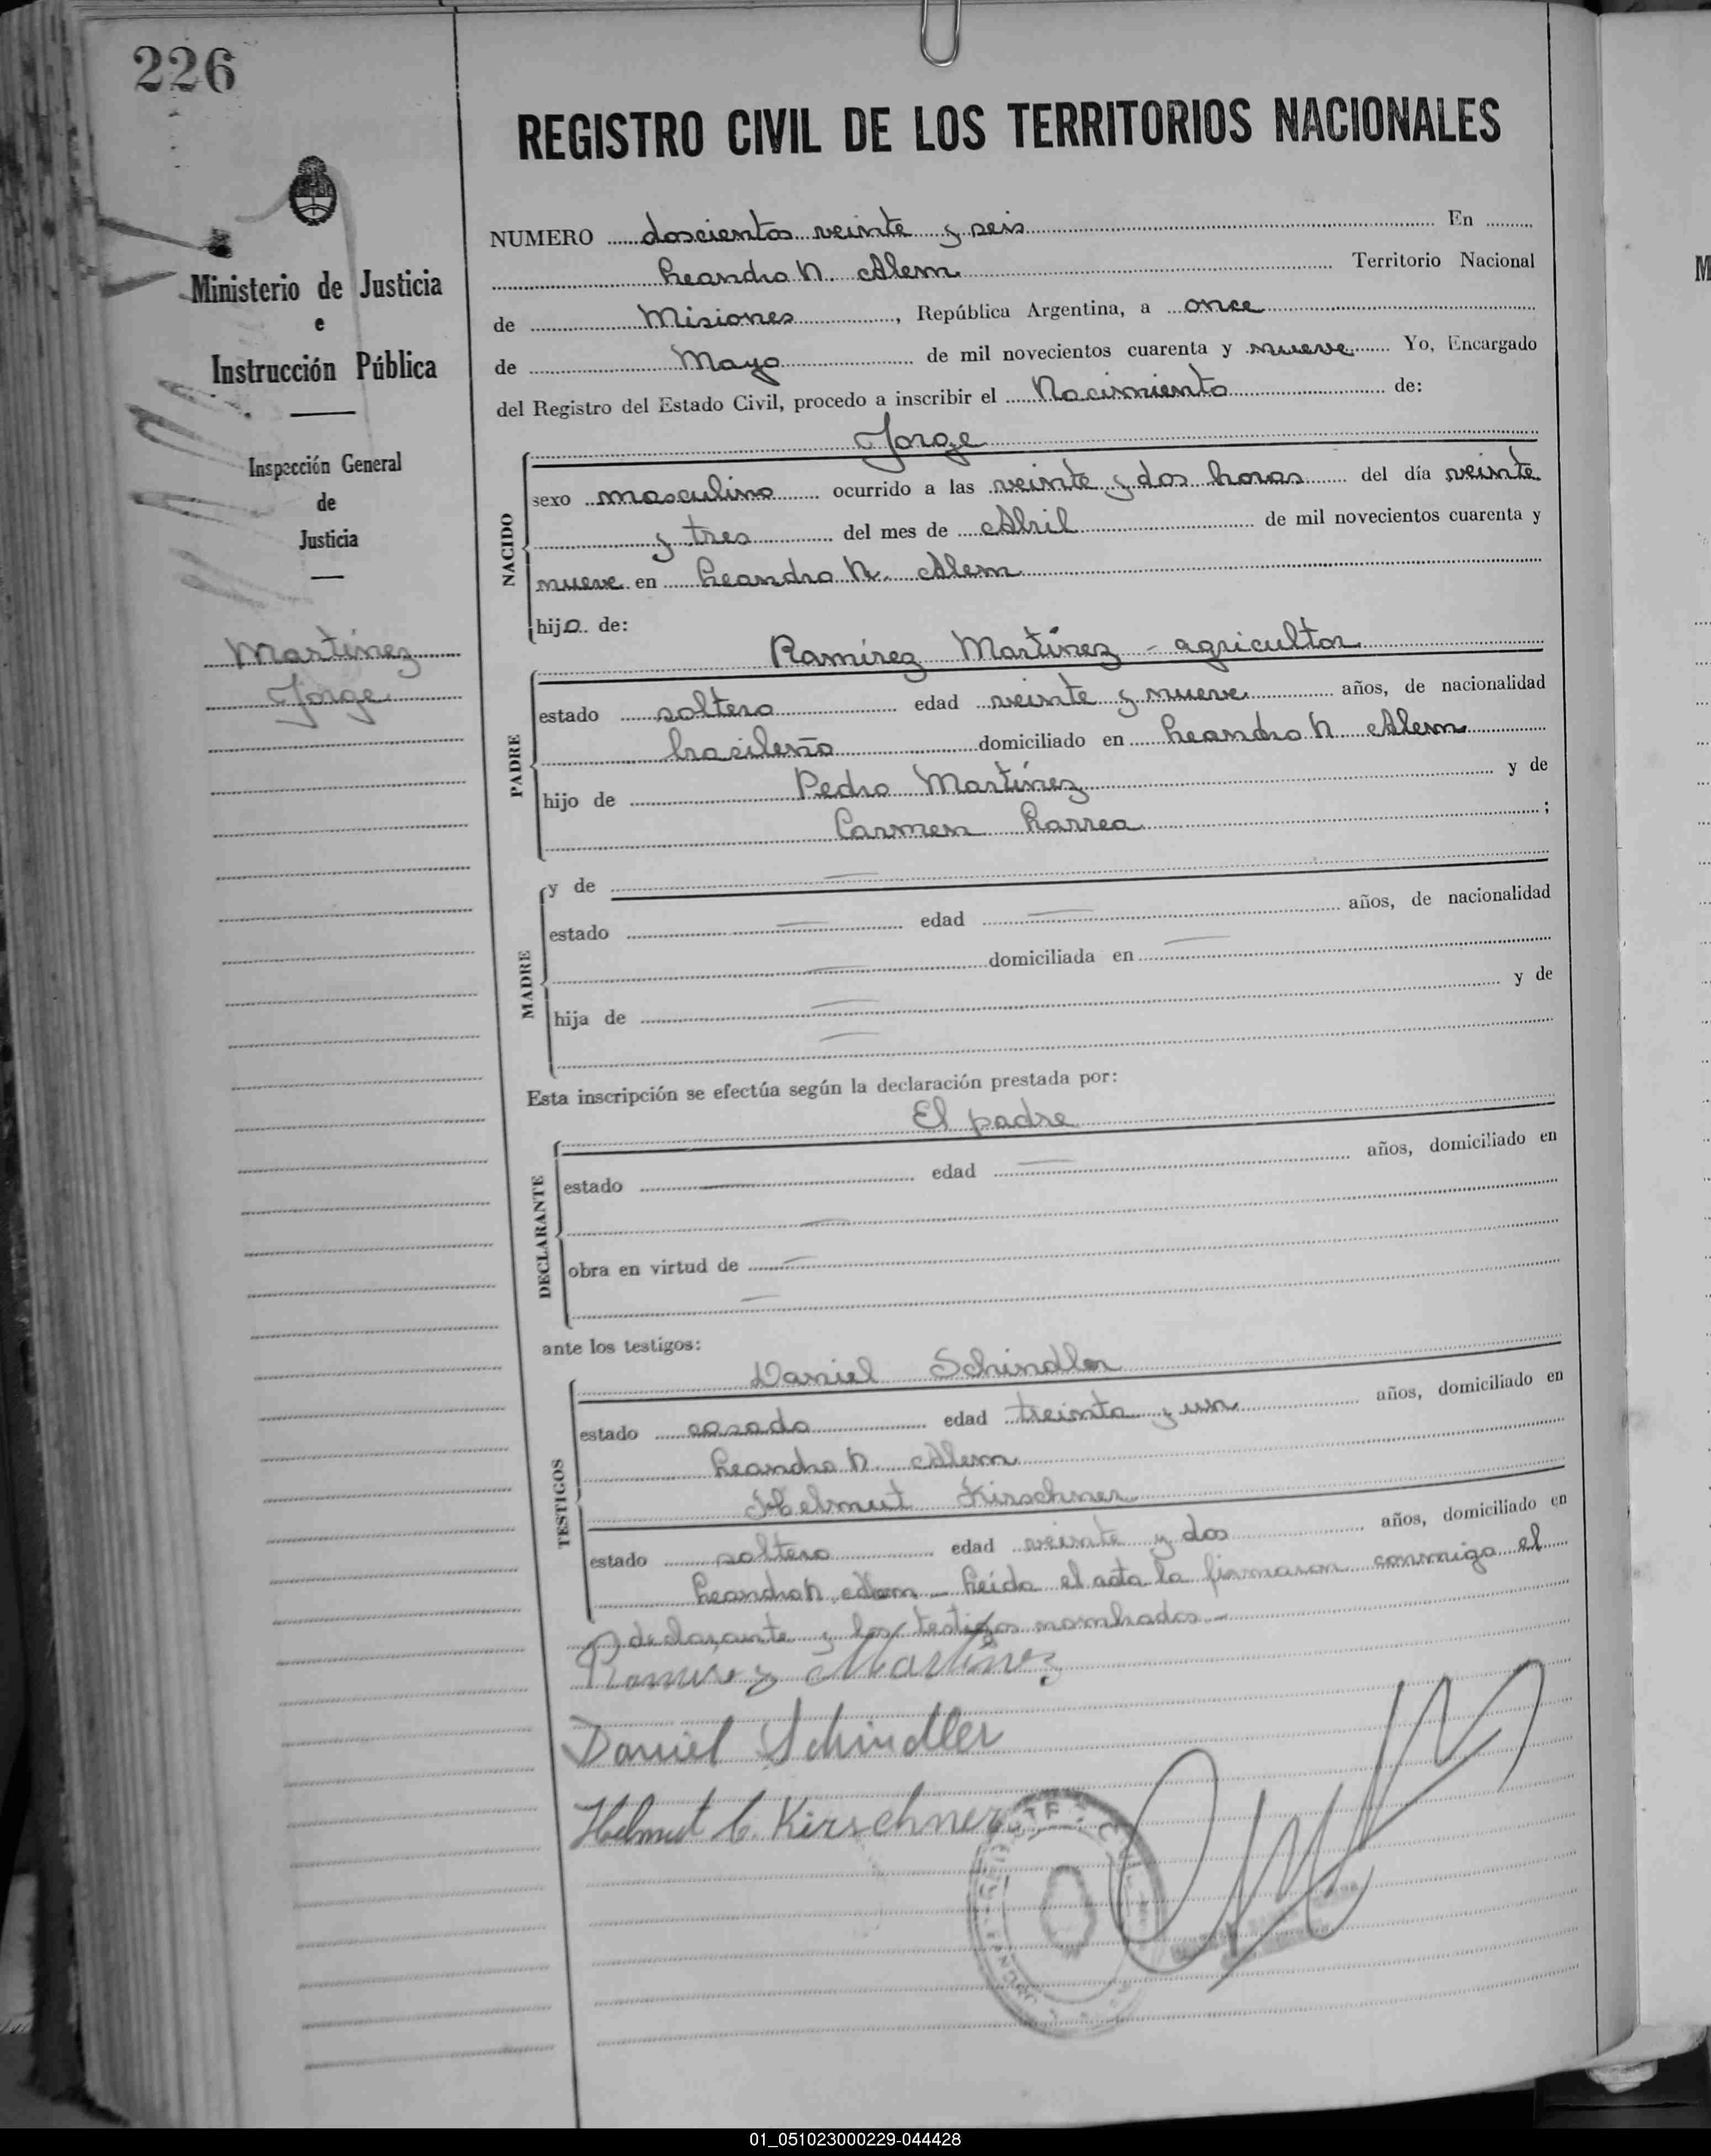 226
REGISTRO CIVIL DE LOS TERRITORIOS NACIONALES
Ministerio de Justicia
e
Instrucción Pública
Inspección General
de
Justicia
Martínez
Jorge
NUMERO doscientos veinte y seis En
Leandro N. Alem Territorio Nacional
de Misiones, República Argentina, a once
de Mayo de mil novecientos cuarenta y nueve Yo, Encargado
del Registro del Estado Civil, procedo a inscribir el Nacimiento de:
Jorge
NACIDO
sexo masculino ocurrido a las veinte y dos horas del día veinte
y tres del mes de Abril de mil novecientos cuarenta y
nueve en Leandro N. Alem
hijo de:
Ramírez Martínez - agricultor
PADRE
estado soltero edad veinte y nueve años, de nacionalidad
brasileño domiciliado en Leandro N Alem
hijo de Pedro Martínez y de
Carmen Larrea ;
MADRE
y de —
estado — edad — años, de nacionalidad
— domiciliada en —
hija de — y de
—
Esta inscripción se efectúa según la declaración prestada por:
El padre
DECLARANTE
estado — edad — años, domiciliado en
—
obra en virtud de —
—
ante los testigos:
Daniel Schindler
TESTIGOS
estado casado edad treinta y un años, domiciliado en
Leandro N. Alem
Helmut Kirschner
estado soltero edad veinte y dos años, domiciliado en
Leandro N. Alem - Leída el acta la firmaron conmigo el
declarante y los testigos nombrados -
Ramirez Martínez
Daniel Schindler
Helmut C. Kirschner
01_051023000229-044428